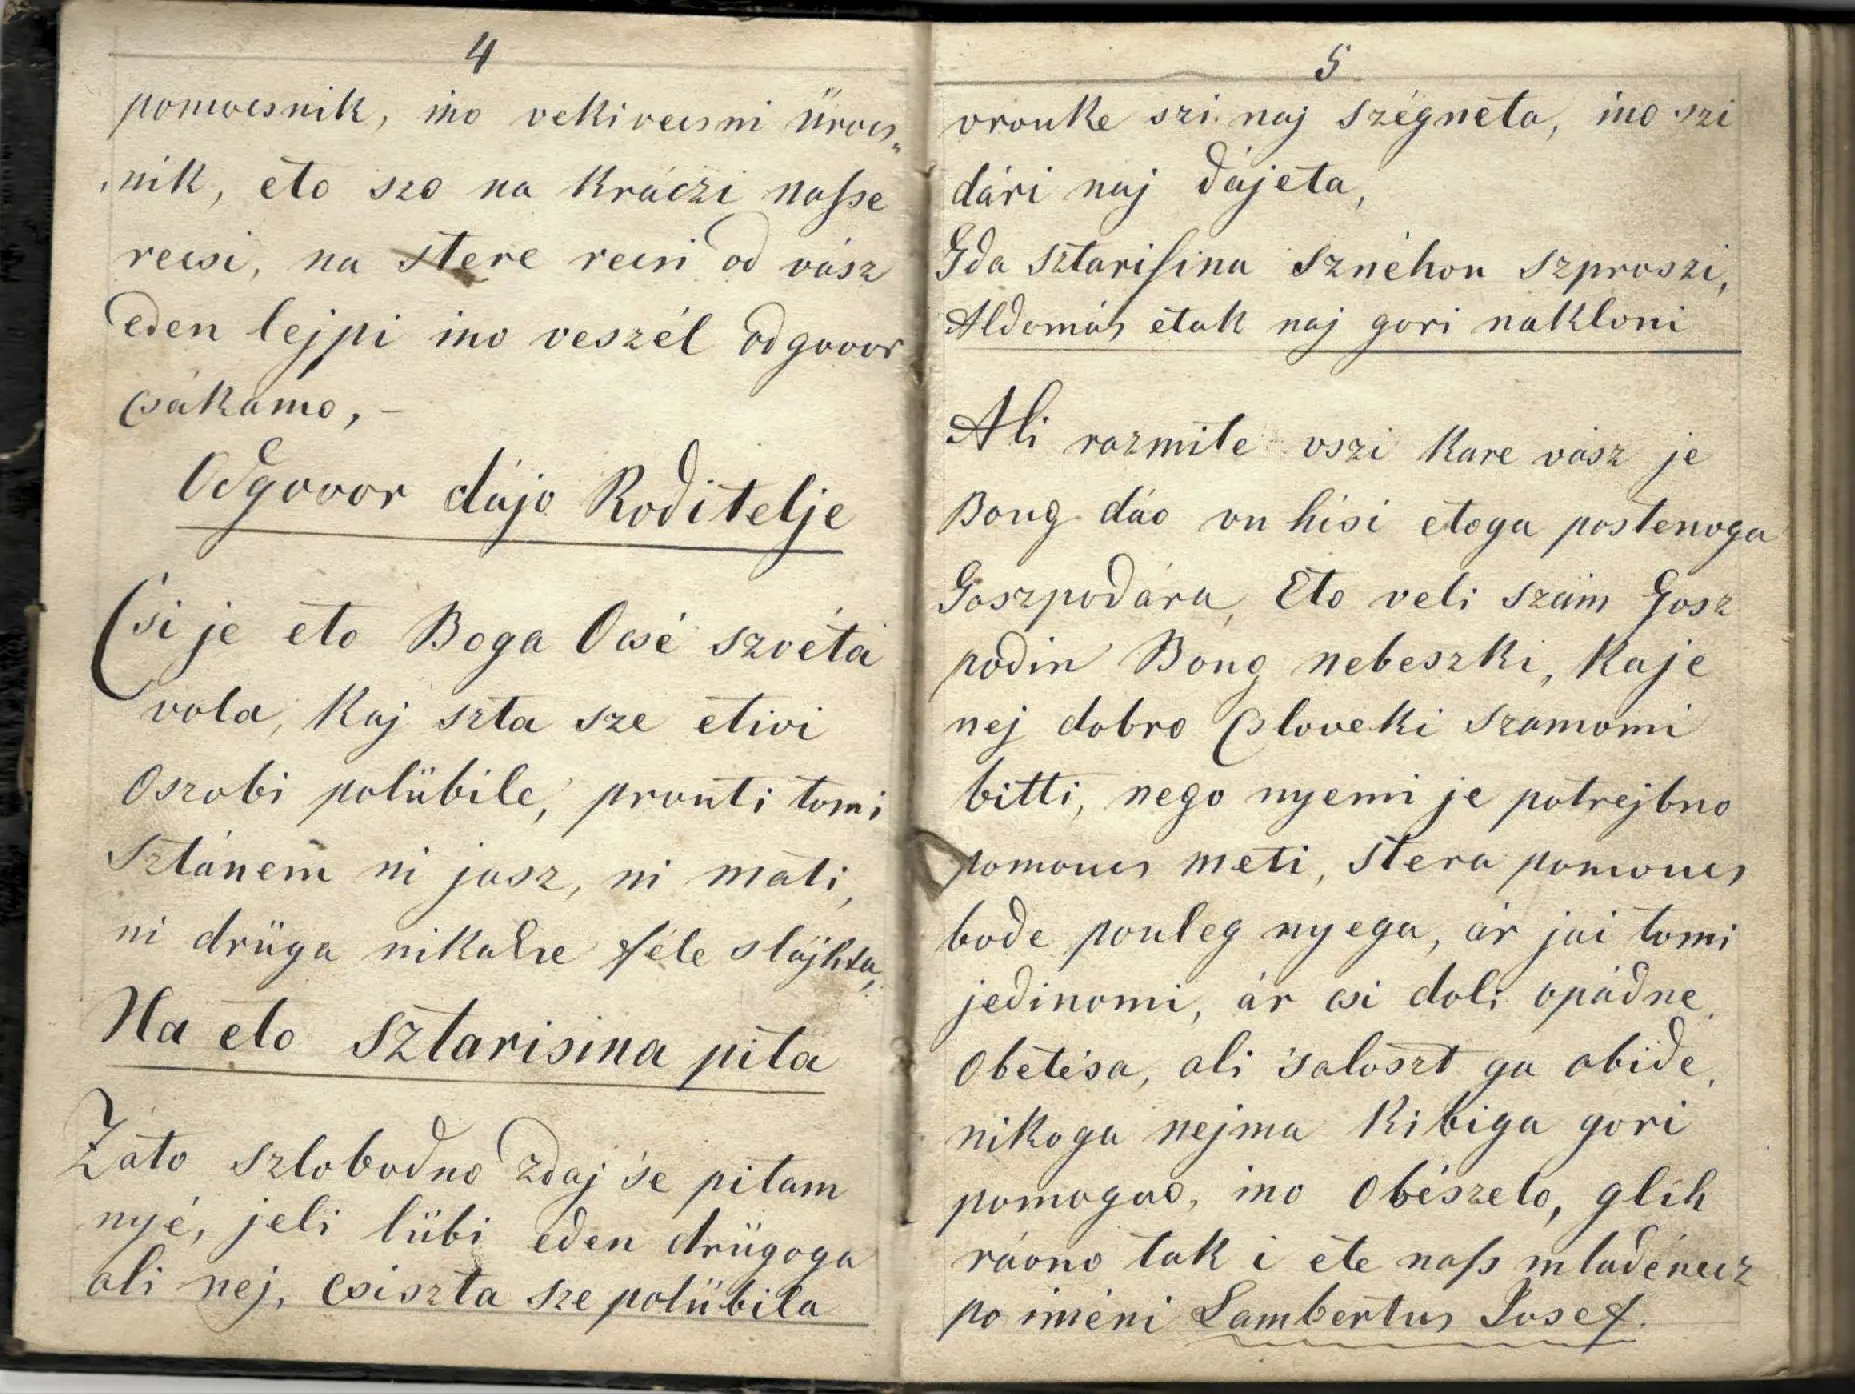 4
pomocsnik, ino vekivecsni Ürocs„
„nik, eto szo na kráczi naſse
recsi, na stere recsi od vász
eden lejpi ino veszél odgovor
csákamo, –
Odgovor dájo Roditelje
Csi je eto Boga Ocsé szvéta
vola, kaj szta sze etivi
Oszobi polübile, prouti tomi
Sztánem ni jasz, ni mati,
ni drüga nikakse féle slájhta,
Na eto Sztarisina pita
Záto szlobodno zdaj se pitam
nyé, jeli lübi eden drügoga
ali nej, csiszta sze polübila
5
vrouke szi naj szégneta, ino szi
dári naj dájeta,
Gda Sztariſina sznéhou szproszi,
Aldomás etak naj gori nakloni
Ali razmite vszi kare vász je
Boug dáo vu hisi etoga postenoga
Goszpodára, Eto veli szám Gosz
podin Boug nebeszki, kaje
nej dobro Csloveki szamomi
bitti, nego nyemi je potrejbno
pomoucs meti, stera pomoucs
bode pouleg nyega, ár jai tomi
jedinomi, ár csi doli opádne
Obetésa, ali saloszt ga obide,
nikoga nejma kibiga gori
pomogao, ino Obészelo, glih
ráono tak i ete naſs mladénecz
po iméni Lambertus Josef.